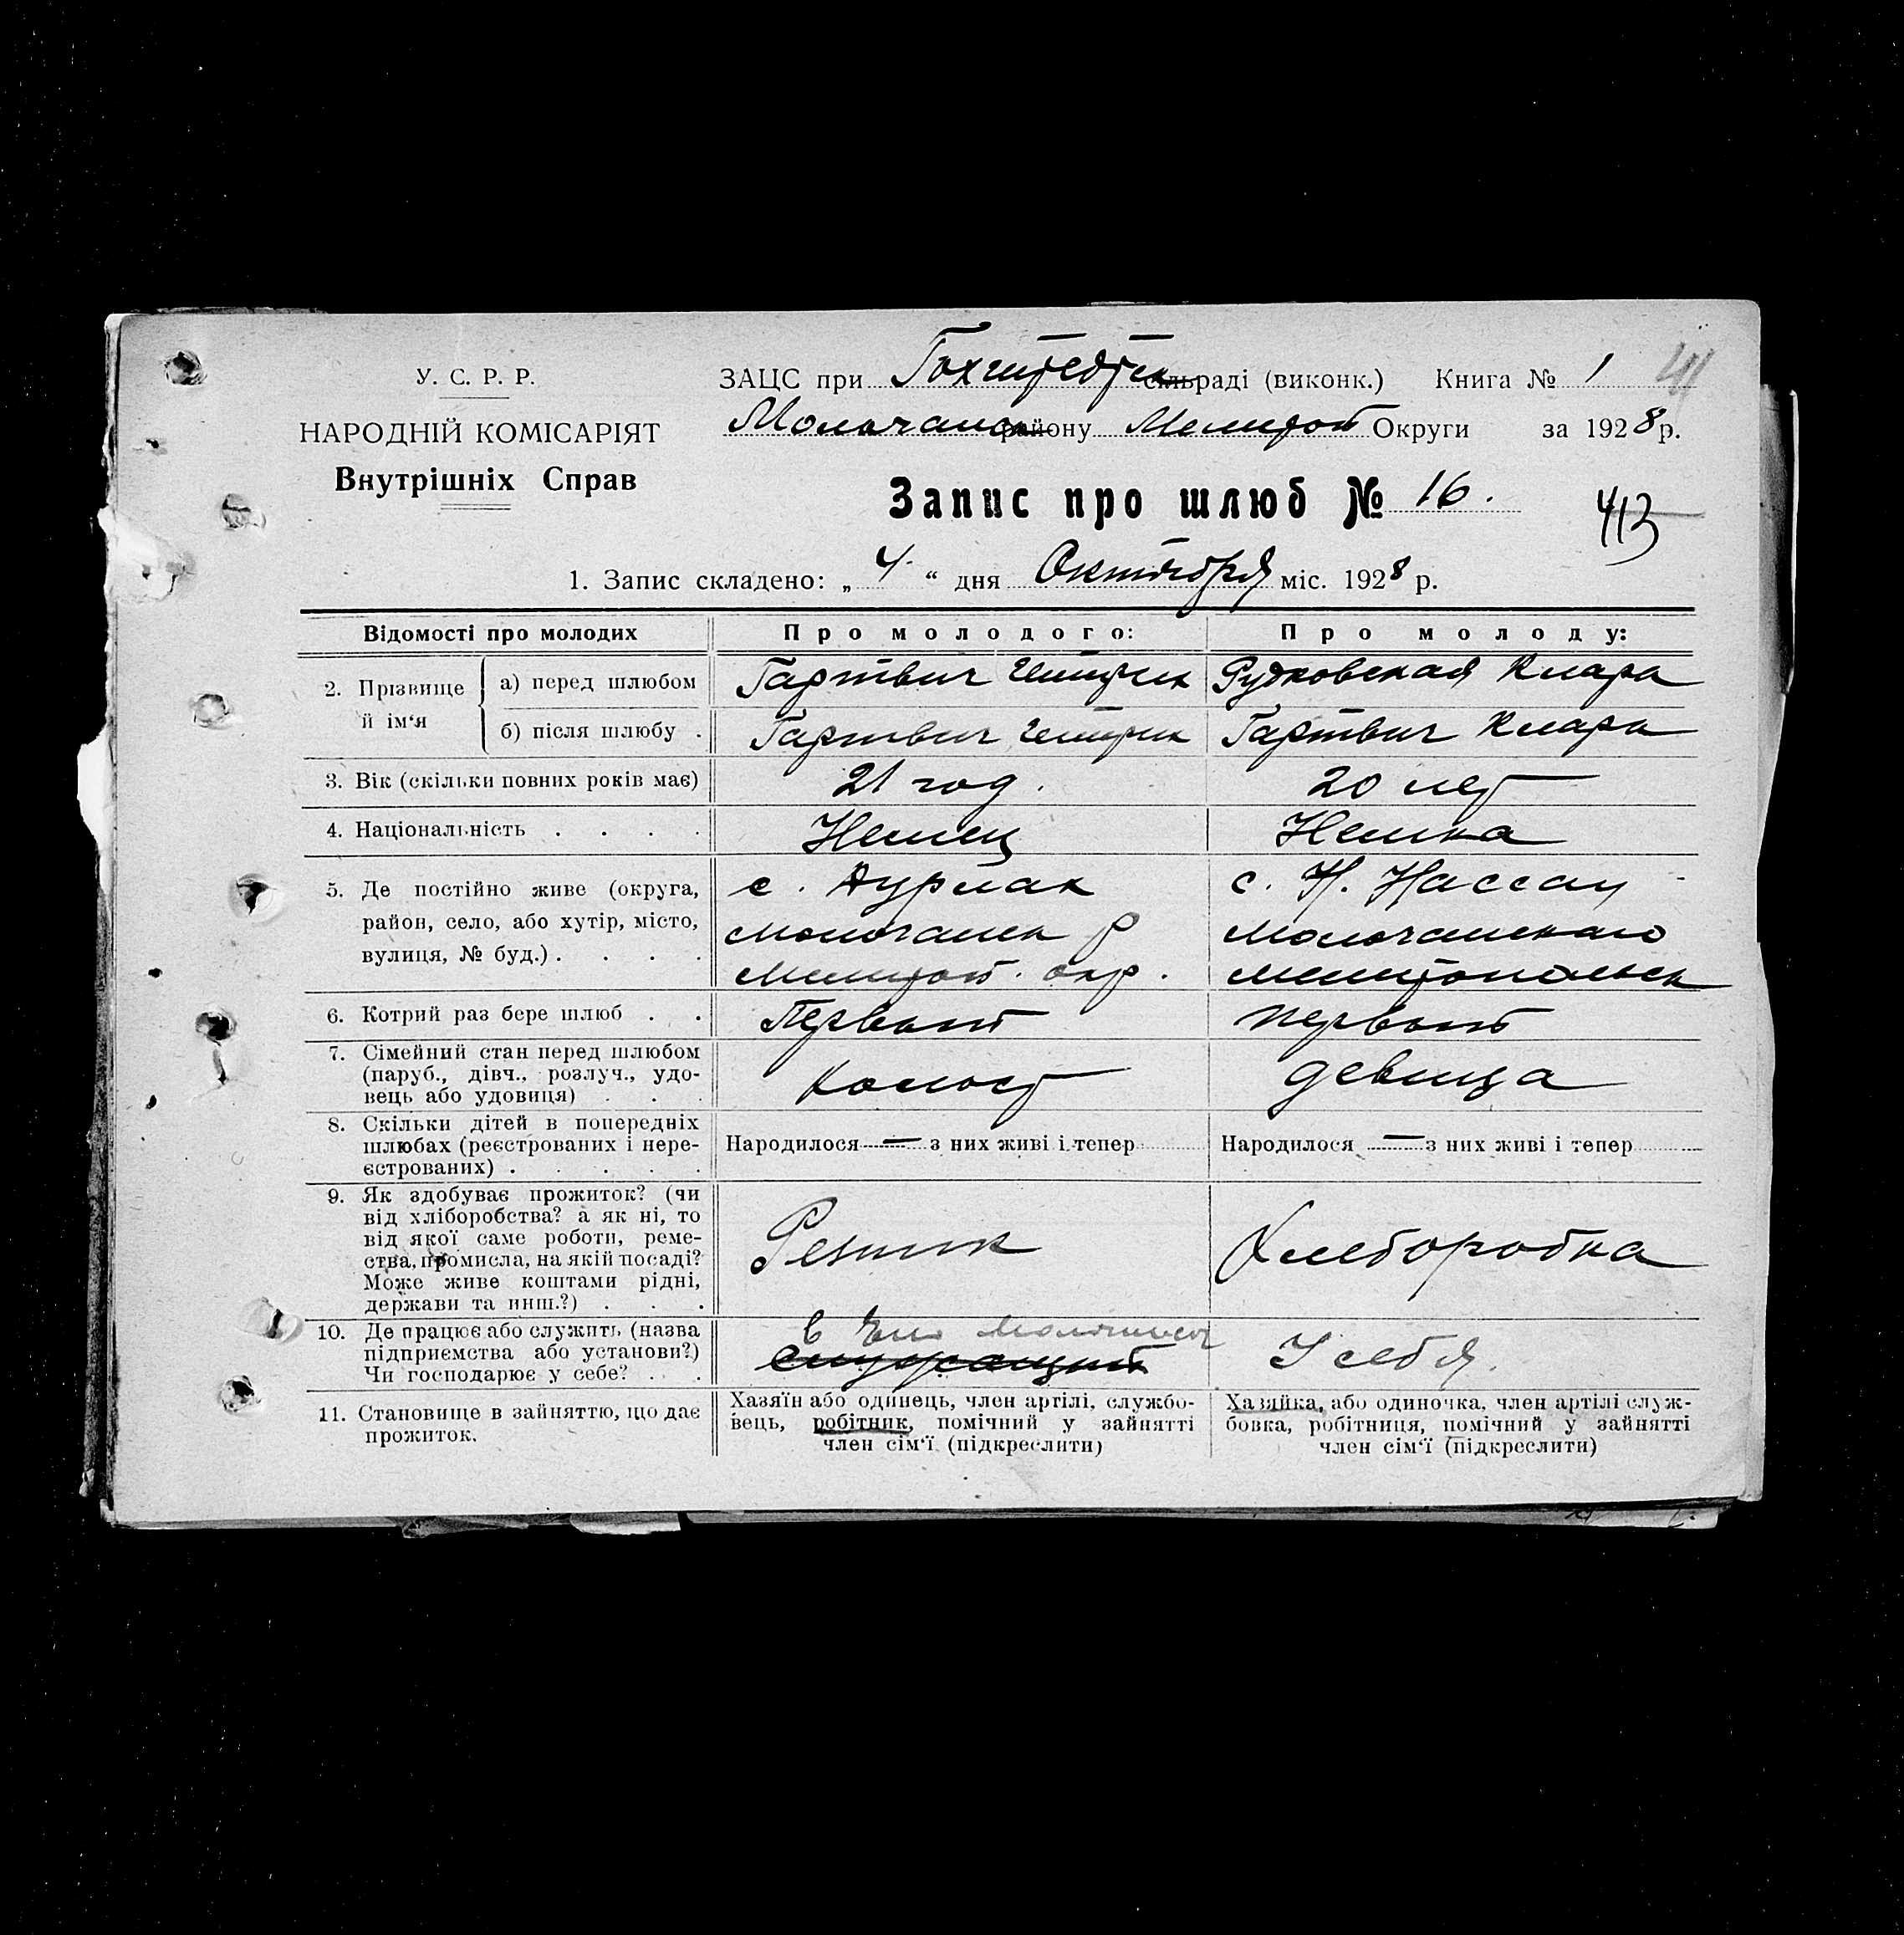 У. С. Р. Р.
НАРОДНІЙ КОМІСАРІЯТ
Внутрішніх Справ
ЗАЦС при Гохштедтск сільраді (виконк.) Книга № 1
Молочанск району Мелитоп Округи за 1928 р.
Запис про шлюб № 16.
413
1. Запис складено: „ 4 “ дня Октября міс. 1928 р.
Відомості про молодих
Про молодого:
Про молоду:
2. Прізвище й ім‘я
а) перед шлюбом
Гартвиг Генрих
Рудковская Клара
б) після шлюбу .
Гартвиг Генрих
Гартвиг Клара
3. Вік (скільки повних років має)
21 год.
20 лет
4. Національність . . . .
Немец
Немка
5. Де постійно живе (округа,
район, село, або хутір, місто,
вулиця, № буд.) . . . .
с.
Молочанск р
Мелитоп. окр.
с. Н. Нассау
Молочанского
Мелитопольск
6. Котрий раз бере шлюб . .
Первый
первый
7. Сімейний стан перед шлюбом
(паруб., дівч., розлуч., удо-
вець або удовиця) . . .
холост
девица
8. Скільки дітей в попередніх
шлюбах (реєстрованих і нере-
єстрованих) . . . . .
Народилося — з них живі і тепер
Народилося — з них живі і тепер
9. Як здобуває прожиток? (чи
від хліборобства? а як ні, то
від якої саме роботи, реме-
ства, промисла, на якій посаді?
Може живе коштами рідні,
держави та инш.?) . . .
Резник
Хлеборобка
10. Де працює або служить (назва
підприємства або установи?)
Чи господарює у себе? . . .
в
У себя.
11. Становище в зайняттю, що дає
прожиток.
Хазяїн або одинець, член артілі, службо-
вець, робітник, помічний у зайнятті
член сім‘ї (підкреслити)
Хазяйка, або одиночка, член артілі служ-
бовка, робітниця, помічний у зайнятті
член сім‘ї (підкреслити)